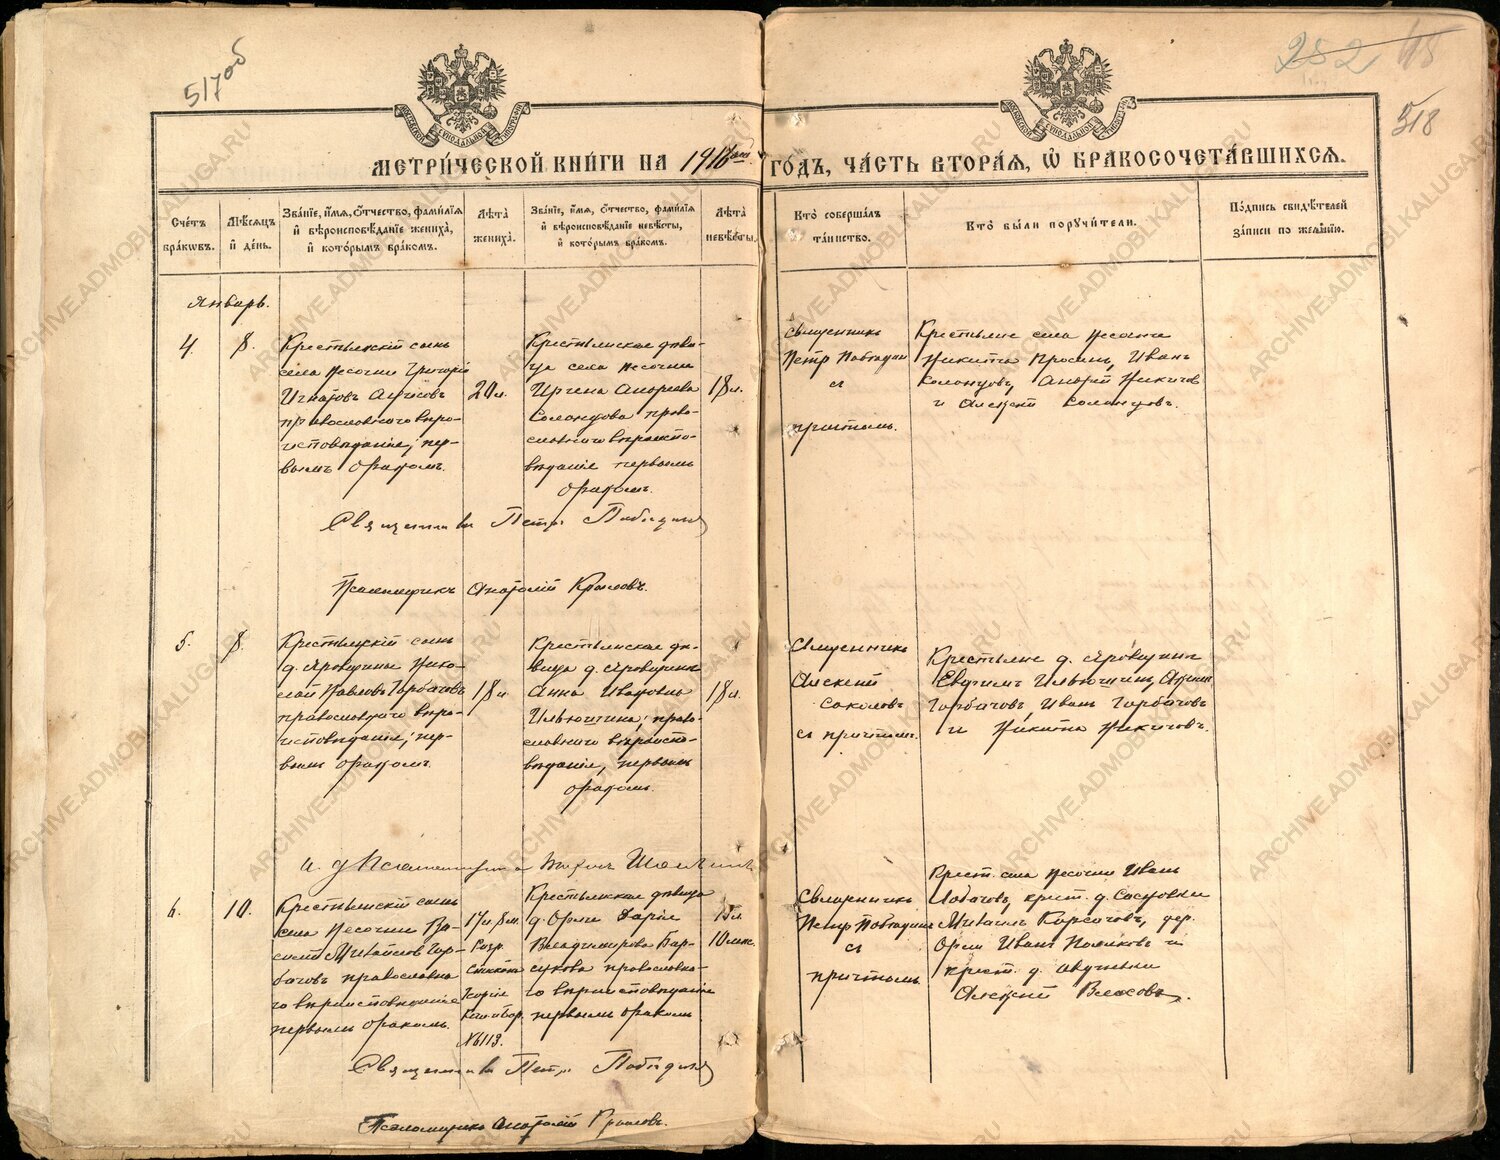 517об
252
518
МЕТРИ́ЧЕСКОЙ КНИ́ГИ НА 1916 ГО́ДЪ, ЧА́СТЬ ВТОРА́Я, Ѡ БРАКОСОЧЕТА́ВШИХСЯ.
Сче́тъ бра́кѡвъ.
Мѣ́сяцъ и де́нь.
Зва́нїе, и́мя, ѻ́тчество, фами́лїя и вѣроисповѣ́данїе жениха̀, и кото́рымъ бра́комъ.
Лѣ́та жениха̀.
Зва́нїе, и́мя, ѻ́тчество, фами́лїя и вѣроисповѣ́данїе невѣ́сты, и кото́рымъ бра́комъ.
Лѣ́та невѣ́сты.
Кто̀ соверша́лъ та́инство.
Кто̀ бы́ли порꙋчи́тели.
По́дпись свидѣ́телей за́писи по жела́нїю.
Январь.
4.
8.
Крестьянскій сынъ
села Песочни Григорій
Игнатовъ
православнаго вѣро-
исповѣданія, пер-
вымъ бракомъ.
20 л.
Крестьянская дѣви-
ца села Песочни
Ирина Андреева
Солонцова право-
славнаго вѣроиспо-
вѣданія первымъ
бракомъ.
18 л.
Священникъ
Петръ Побѣдин
съ
причтомъ.
Крестьяне села Песочни
Никита Просинъ, Иванъ
Солонцовъ, Андрей Никитовъ
и Алексей Солонцовъ.
Священникъ Петръ Побѣдин
Псаломщикъ Анатолій Крыловъ.
5.
8.
Крестьянскій сынъ
д. Яровщины Нико-
лай Павловъ Горбачовъ
православнаго вѣро-
исповѣданія, пер-
вымъ бракомъ.
18 л.
Крестьянская дѣ-
вица д. Яровщины
Анна Иванова
Ильюшина, право-
славнаго вѣроиспо-
вѣданія, первымъ
бракомъ.
18 л.
Священникъ
Алексей
Соколовъ
съ причтомъ.
Крестьяне д. Яровщины
Евфимъ Ильюшинъ,
Горбачовъ, Иванъ Горбачовъ
и Никита Никитовъ.
и. д. Псаломщика
6.
10.
Крестьянскій сынъ
села Песочни Ва-
силій Михайловъ Гор-
бачовъ православна-
го вѣроисповѣданія
первымъ бракомъ.
17 л. 8 м.
№ 113.
Крестьянская дѣвица
д. Орли Дарія
Владимирова Бар-
сукова православна-
го вѣроисповѣданія
первымъ бракомъ
15 л.
10 мѣс.
Священникъ
Петръ Побѣдин
съ
причтомъ.
Крест. села Песочни Иванъ
Лобачовъ, крест. д. Сосновки
Михаилъ Корсаковъ, дер.
Орли Иванъ Поляковъ и
крест. д.
Алексей Власовъ.
Священникъ Петръ Побѣдин
Псаломщикъ Анатолій Крыловъ.
ARCHIVE.ADMOBLKALUGA.RU